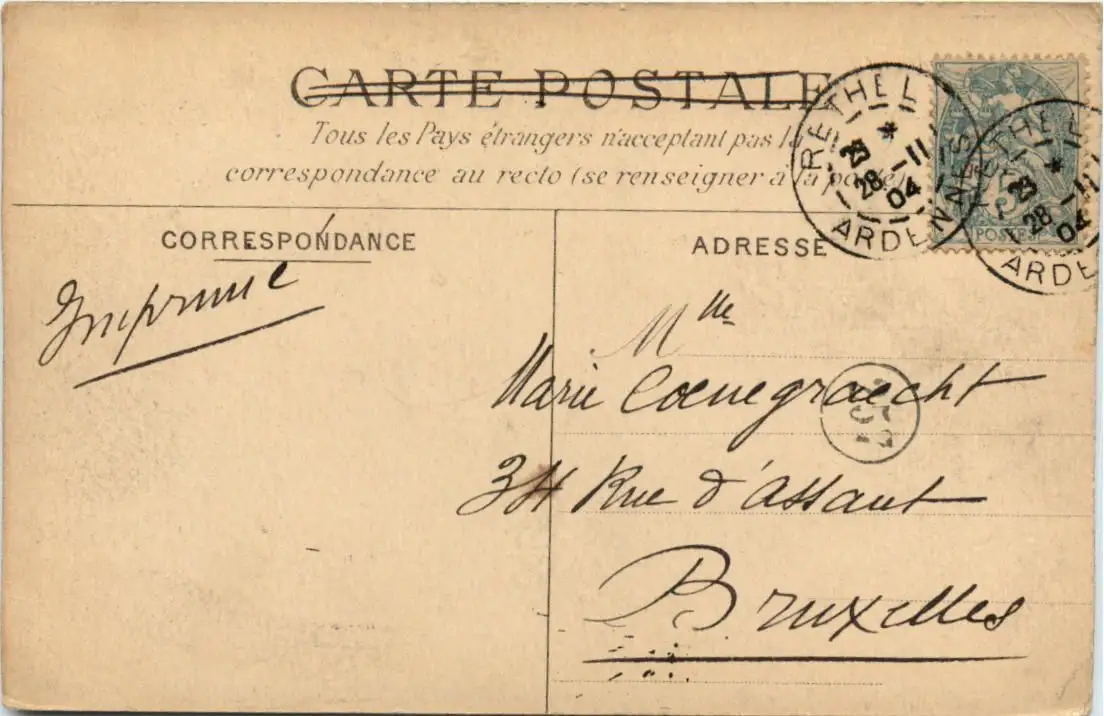 CARTE POSTALE
Tous les Pays étrangers n'acceptant pas la
correspondance au recto (se renseigner à la poste)
RETHEL
23
28 -11
04
ARDENNES
RETHEL
23
28 -11
04
ARDE
POSTES
CORRESPONDANCE
ADRESSE
Imprimé
Mlle
Marie Coenegraecht
34 Rue d'assaut
Bruxelles